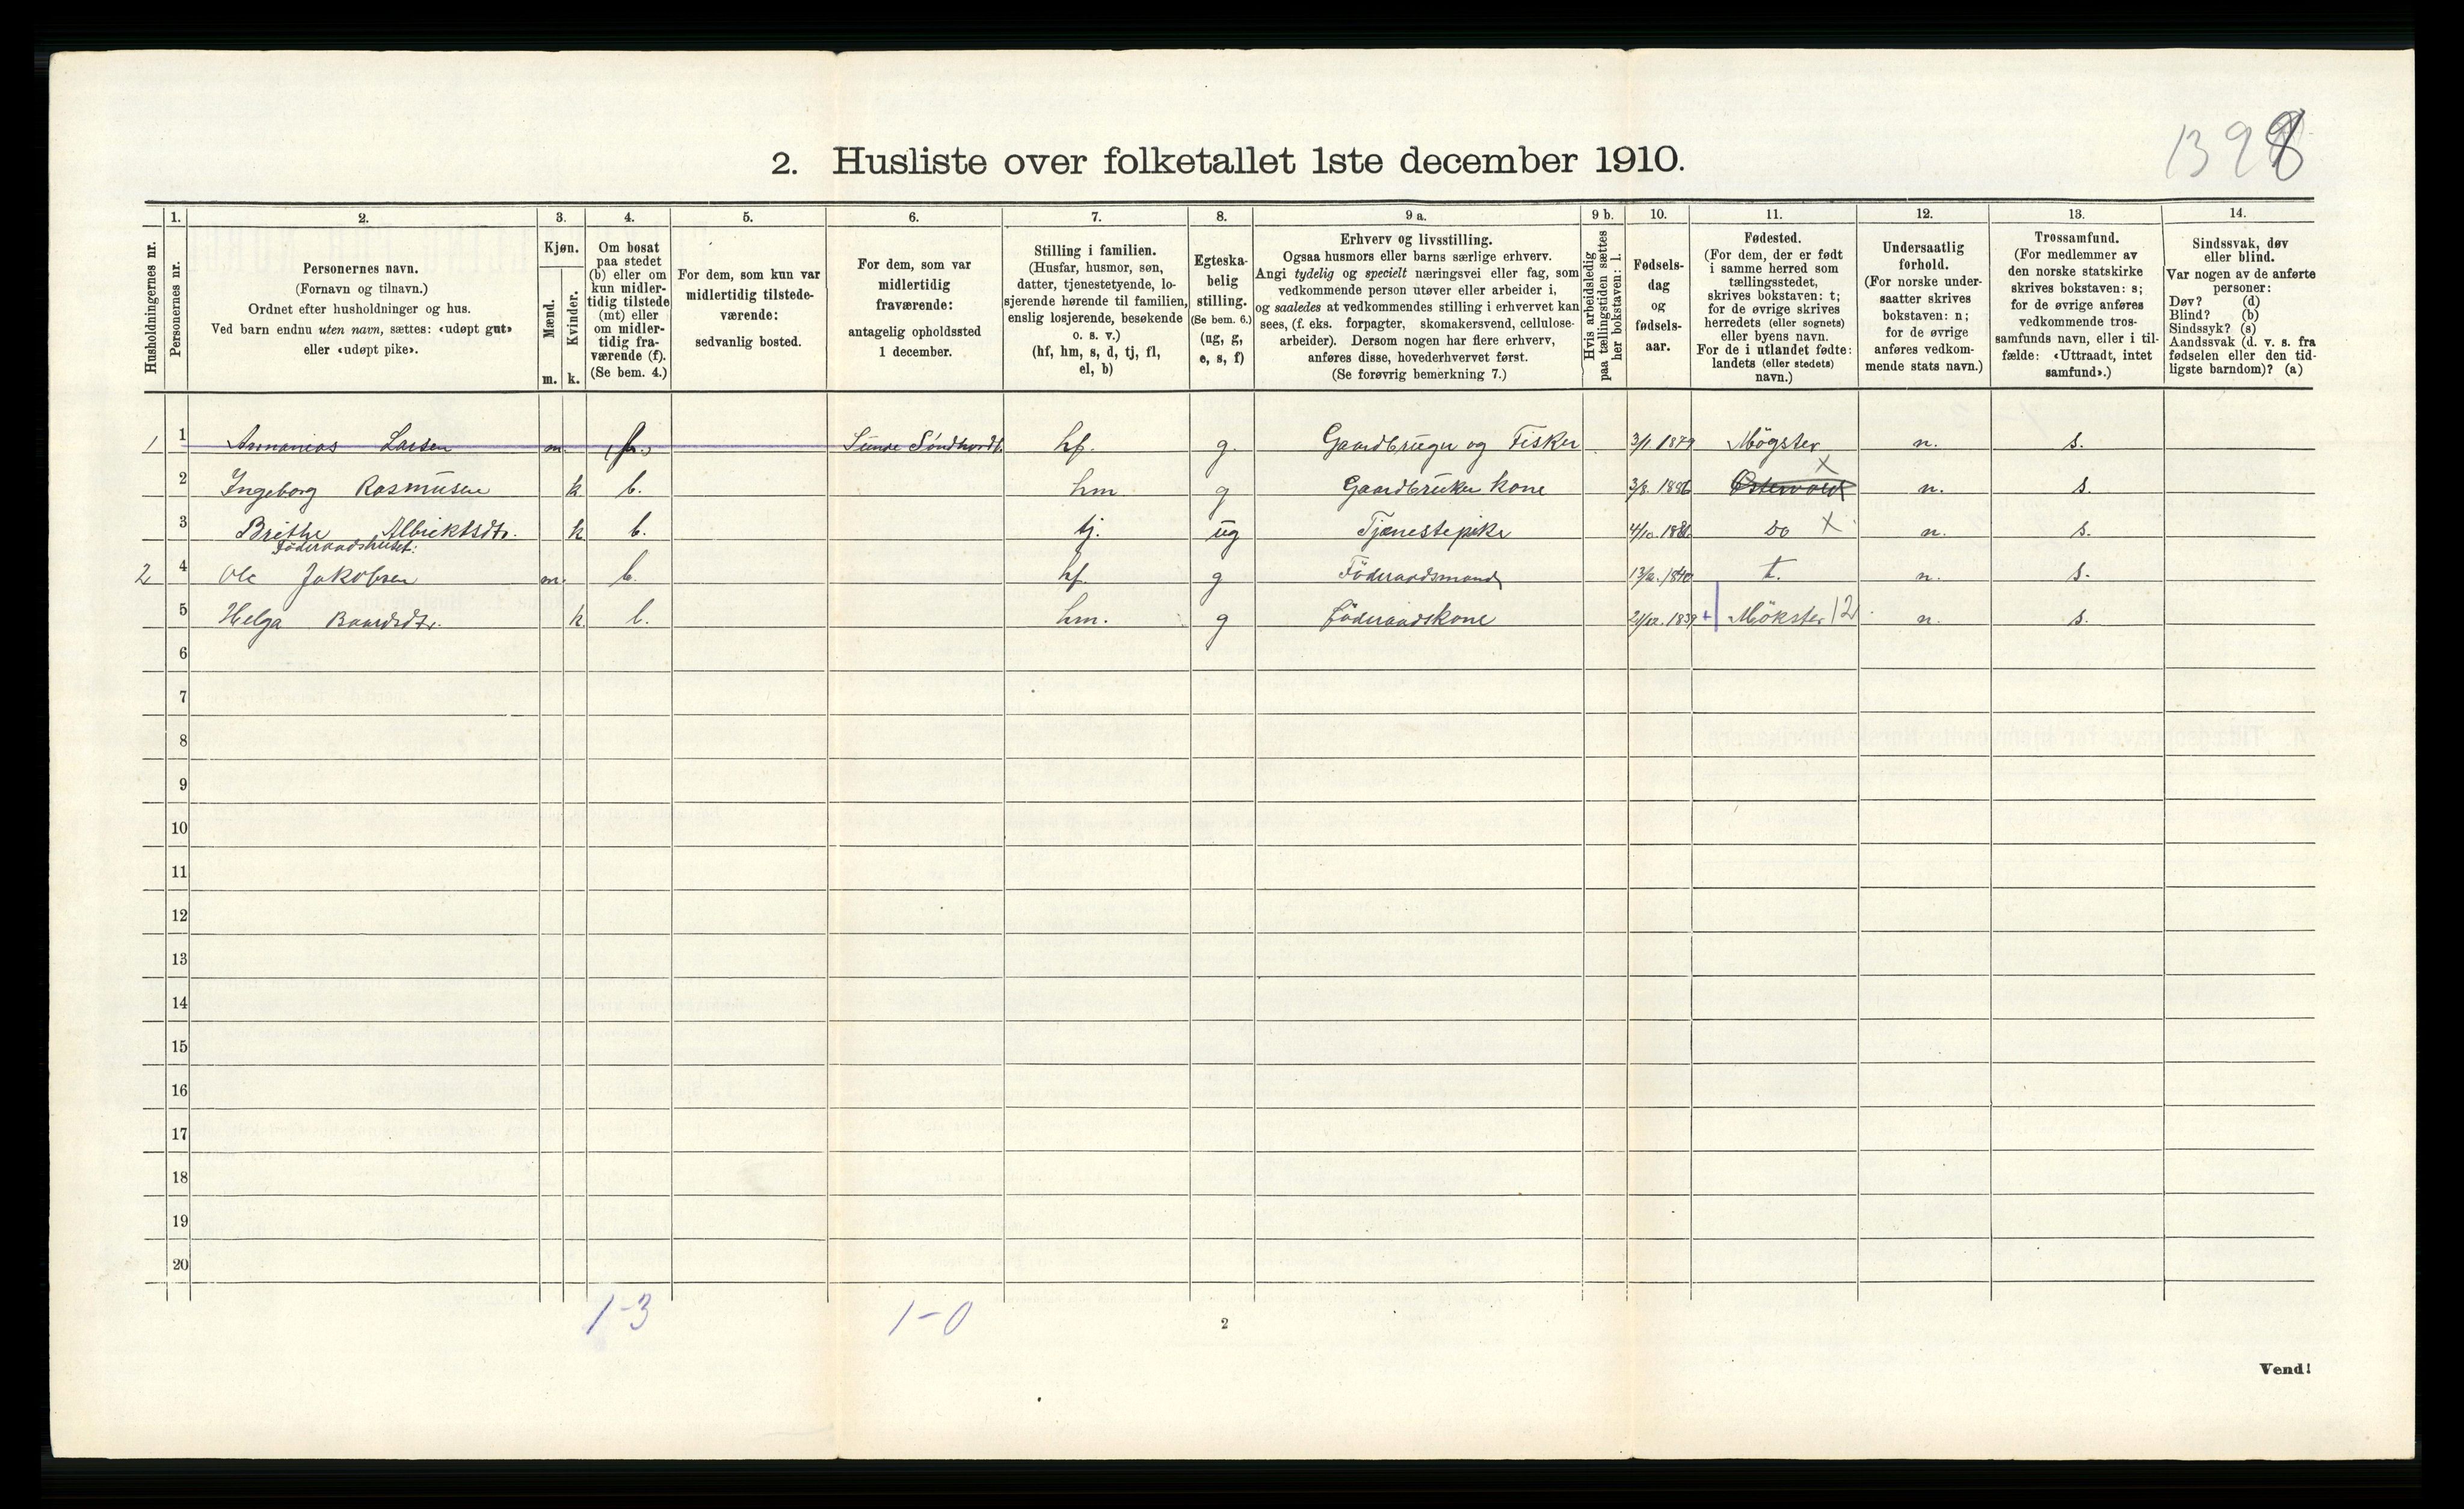 1398
2. Husliste over folketallet 1ste december 1910.
Husholdningernes nr.
1. Personernes nr.
2. Personernes navn.
(Fornavn og tilnavn.)
Ordnet efter husholdninger og hus.
Ved barn endnu uten navn, sættes: «udøpt gut»
eller «udøpt pike».
3. Kjøn.
Mænd. m.
Kvinder. k.
4. Om bosat
paa stedet
(b) eller om
kun midler-
tidig tilstede
(mt) eller
om midler-
tidig fra-
værende (f).
(Se bem. 4.)
5. For dem, som kun var
midlertidig tilstede-
værende:
sedvanlig bosted.
6. For dem, som var
midlertidig
fraværende:
antagelig opholdssted
1 december.
7. Stilling i familien.
(Husfar, husmor, søn,
datter, tjenestetyende, lo-
sjerende hørende til familien,
enslig losjerende, besøkende
o. s. v.)
(hf, hm, s, d, tj, fl,
el, b)
8. Egteska-
belig
stilling.
(Se bem. 6.)
(ug, g,
e, s, f)
9 a. Erhverv og livsstilling.
Ogsaa husmors eller barns særlige erhverv.
Angi tydelig og specielt næringsvei eller fag, som
vedkommende person utøver eller arbeider i,
og saaledes at vedkommendes stilling i erhvervet kan
sees, (f. eks. forpagter, skomakersvend, cellulose-
arbeider). Dersom nogen har flere erhverv,
anføres disse, hovederhvervet først.
(Se forøvrig bemerkning 7.)
9 b. Hvis arbeidsledig
paa tællingstiden sættes
her bokstaven: l.
10. Fødsels-
dag
og
fødsels-
aar.
11. Fødested.
(For dem, der er født
i samme herred som
tællingsstedet,
skrives bokstaven: t;
for de øvrige skrives
herredets (eller sognets)
eller byens navn.
For de i utlandet fødte:
landets (eller stedets)
navn.)
12. Undersaatlig
forhold.
(For norske under-
saatter skrives
bokstaven: n;
for de øvrige
anføres vedkom-
mende stats navn.)
13. Trossamfund.
(For medlemmer av
den norske statskirke
skrives bokstaven: s;
for de øvrige anføres
vedkommende tros-
samfunds navn, eller i til-
fælde: «Uttraadt, intet
samfund».)
14. Sindssvak, døv
eller blind.
Var nogen av de anførte
personer:
Døv? (d)
Blind? (b)
Sindssyk? (s)
Aandssvak (d. v. s. fra
fødselen eller den tid-
ligste barndom)? (a)
1 1 Annanias Larsen m. Sunde Söndhordl. hf. g. Gaardbruger og Fisker 3/1. 1879 Mögster n. s.
2 Ingeborg Rasmusen k b. hm g Gaardbruker kone 3/8. 1886 Østervold X n. s.
3 Brithe Albrektsdtr. k b. tj. ug Tjenestepike 4/10. Do X n. s.
Föderaadshuset:
2 4 Ole Jakobsen m. b. hf. g Föderaadsmand 1840 t. n. s.
5 Helga Baardsdtr. k b. hm. g föderaadskone 21/12. 1839 + Mökster 12 n. s.
6
7
8
9
10
11
12
13
14
15
16
17
18
19
20
1-3 1-0
2
Vend!